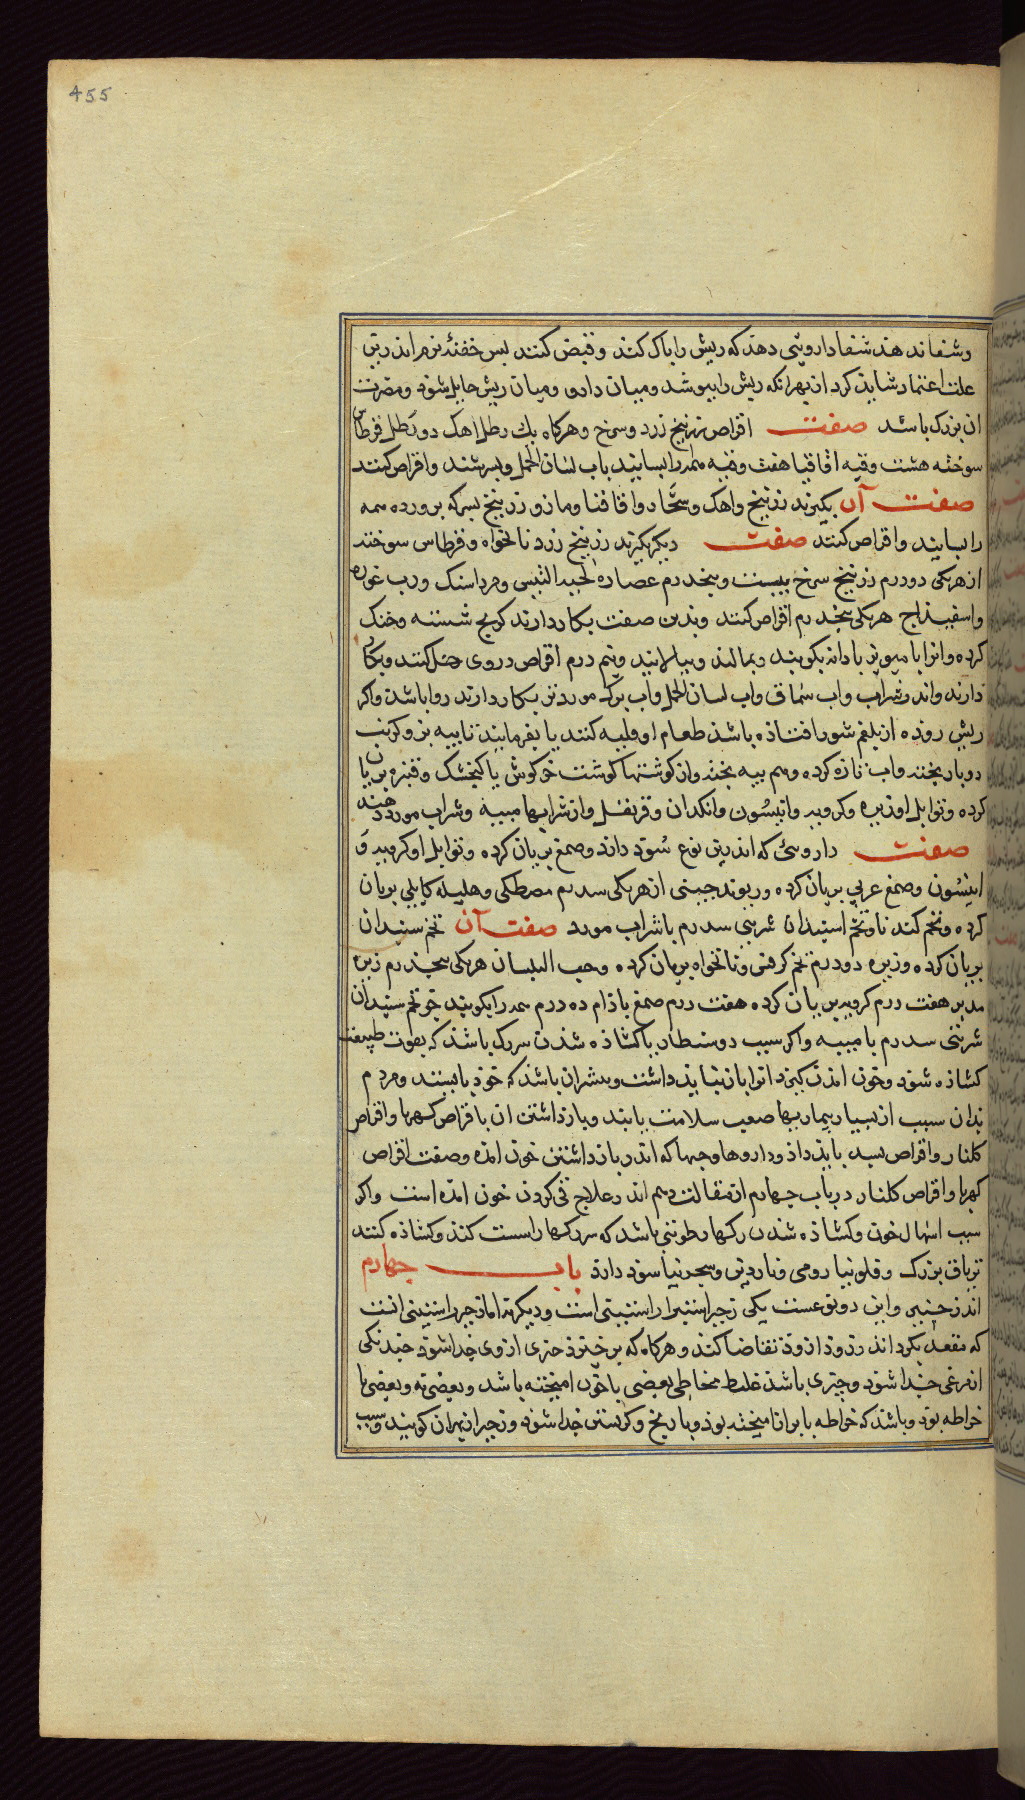 455
وشفا ندهند شفا داروئی دهد که ریش را باک کند و قبض کند بس خفنه نرم اندرین
علت اعتماد شاید کرد از بهر انکه ریش را بپوشد ومیان دارو ومیان ریش حایل شود ومضرت
ان بزرک باشد صفت اقراص زرنیخ زرد وسرخ وهرکاه یك رطل اهک دو رطل قرطاس
سوخته هشت وقیه اقاقیا هفت وقیه همه را بسایند باب لسان الحمل وبسرشند واقراص کنند
صفت آن بکیرند زرنیخ واهک وشخار واقاقیا ومازو زرنیخ بسرکه برورده همه
را بسایند واقراص کنند صفت دیکر بکیرند زرنیخ زرد نانخواه وقرطاس سوخته
از هریکی دو درم زرنیخ سرخ بیست وپنجدرم عصاره لحیه التیس ومرداسنک ورب غوره
واسفیداج هریکی پنجدرم اقراص کنند وبدین صفت بکار دارند کرنج شسته وخنک
کرده وانرا با مویز با دانه بکوبند وبمالند وبپالایند ونیم درم اقراص در وی حل کنند وبکار
دارند واندر شراب واب سماق واب لسان الحمل واب برک مورد نیز بکار دارند روا باشد واکر
ریش روده از بلغم شور افتاده باشد طعام او قلیه کنند یا بفرمایند تا بپیه بز وکرنب
دو بار بخته واب تازه کرده وهم بپیه بخته واز کوشتها کوشت خرکوش یا کنجشک وقنبره بریان
کرده وتوابل او زیره وکرویه وانیسون وانکدان وقرنفل واز شرابها میبه وشراب مورد دهند
صفت داروئی که اندرین نوع سود دارد وصمغ بریان کرده وتوابل او کرویه و
انیسون وصمغ عربی بریان کرده وریوند جینی از هریکی سه درم مصطکی وهلیله کابلی بریان
کرده وتخم کندنا وتخم اسپندان شربتی سه درم با شراب مورد صفت آن تخم سپندان
بریان کرده وزیره دو درم تخم کرفس ونانخواه بریان کرده وحب البلسان هریکی پنجدرم زیره
مدبر هفت درم کرویه بریان کرده هفت درم صمغ باذام ده درم همه را بکوبند جو تخم سپندان
شربتی سه درم با میبه واکر سبب دوسنطاریا کشاده شدن سر رک باشد که بقوت طبیعت
کشاده شود وخون امدن کیرد انرا باز نباید داشت وبیشتر ان باشد که خود بایستد ومردم
بدان سبب از بسیار بیماریها صعب سلامت یابند وباز داشتن ان باقراص کهربا واقراص
کلنار واقراص بسد باید داد وداروها وحبها که اندر باز داشتن خون امده وصفت اقراص
کهربا واقراص کلنار در باب چهارم از مقالت دهم اندر علاج قی کردن خون امده است واکر
سبب اسهال خون وکشاده شدن رکها رطوبتی باشد که سر رکها را سست کند وکشاده کند
تریاق بزرک وفلونیا رومی وفاردین وسجرنیا سود دارد باب چهارم
اندر زحیر واین دو نوعست یکی زحیر راستین است ودیکر نه اما زحیر راستین انست
که مقعد بکرد اندر زود از وذ تقاضا کند وهرکاه که برخیزد چیزی از وی جدا شود جندنکی
از مرغی جدا شود وچیزی باشد غلیظ مخاطی بعضی با خون امیخته باشد وبعضی نه وبعضی با
خراطه بود وباشد که خراطه با براز امیخته بود وبا رنج وکریستن جدا شود وزحیر از بهر ان کویند وسبب